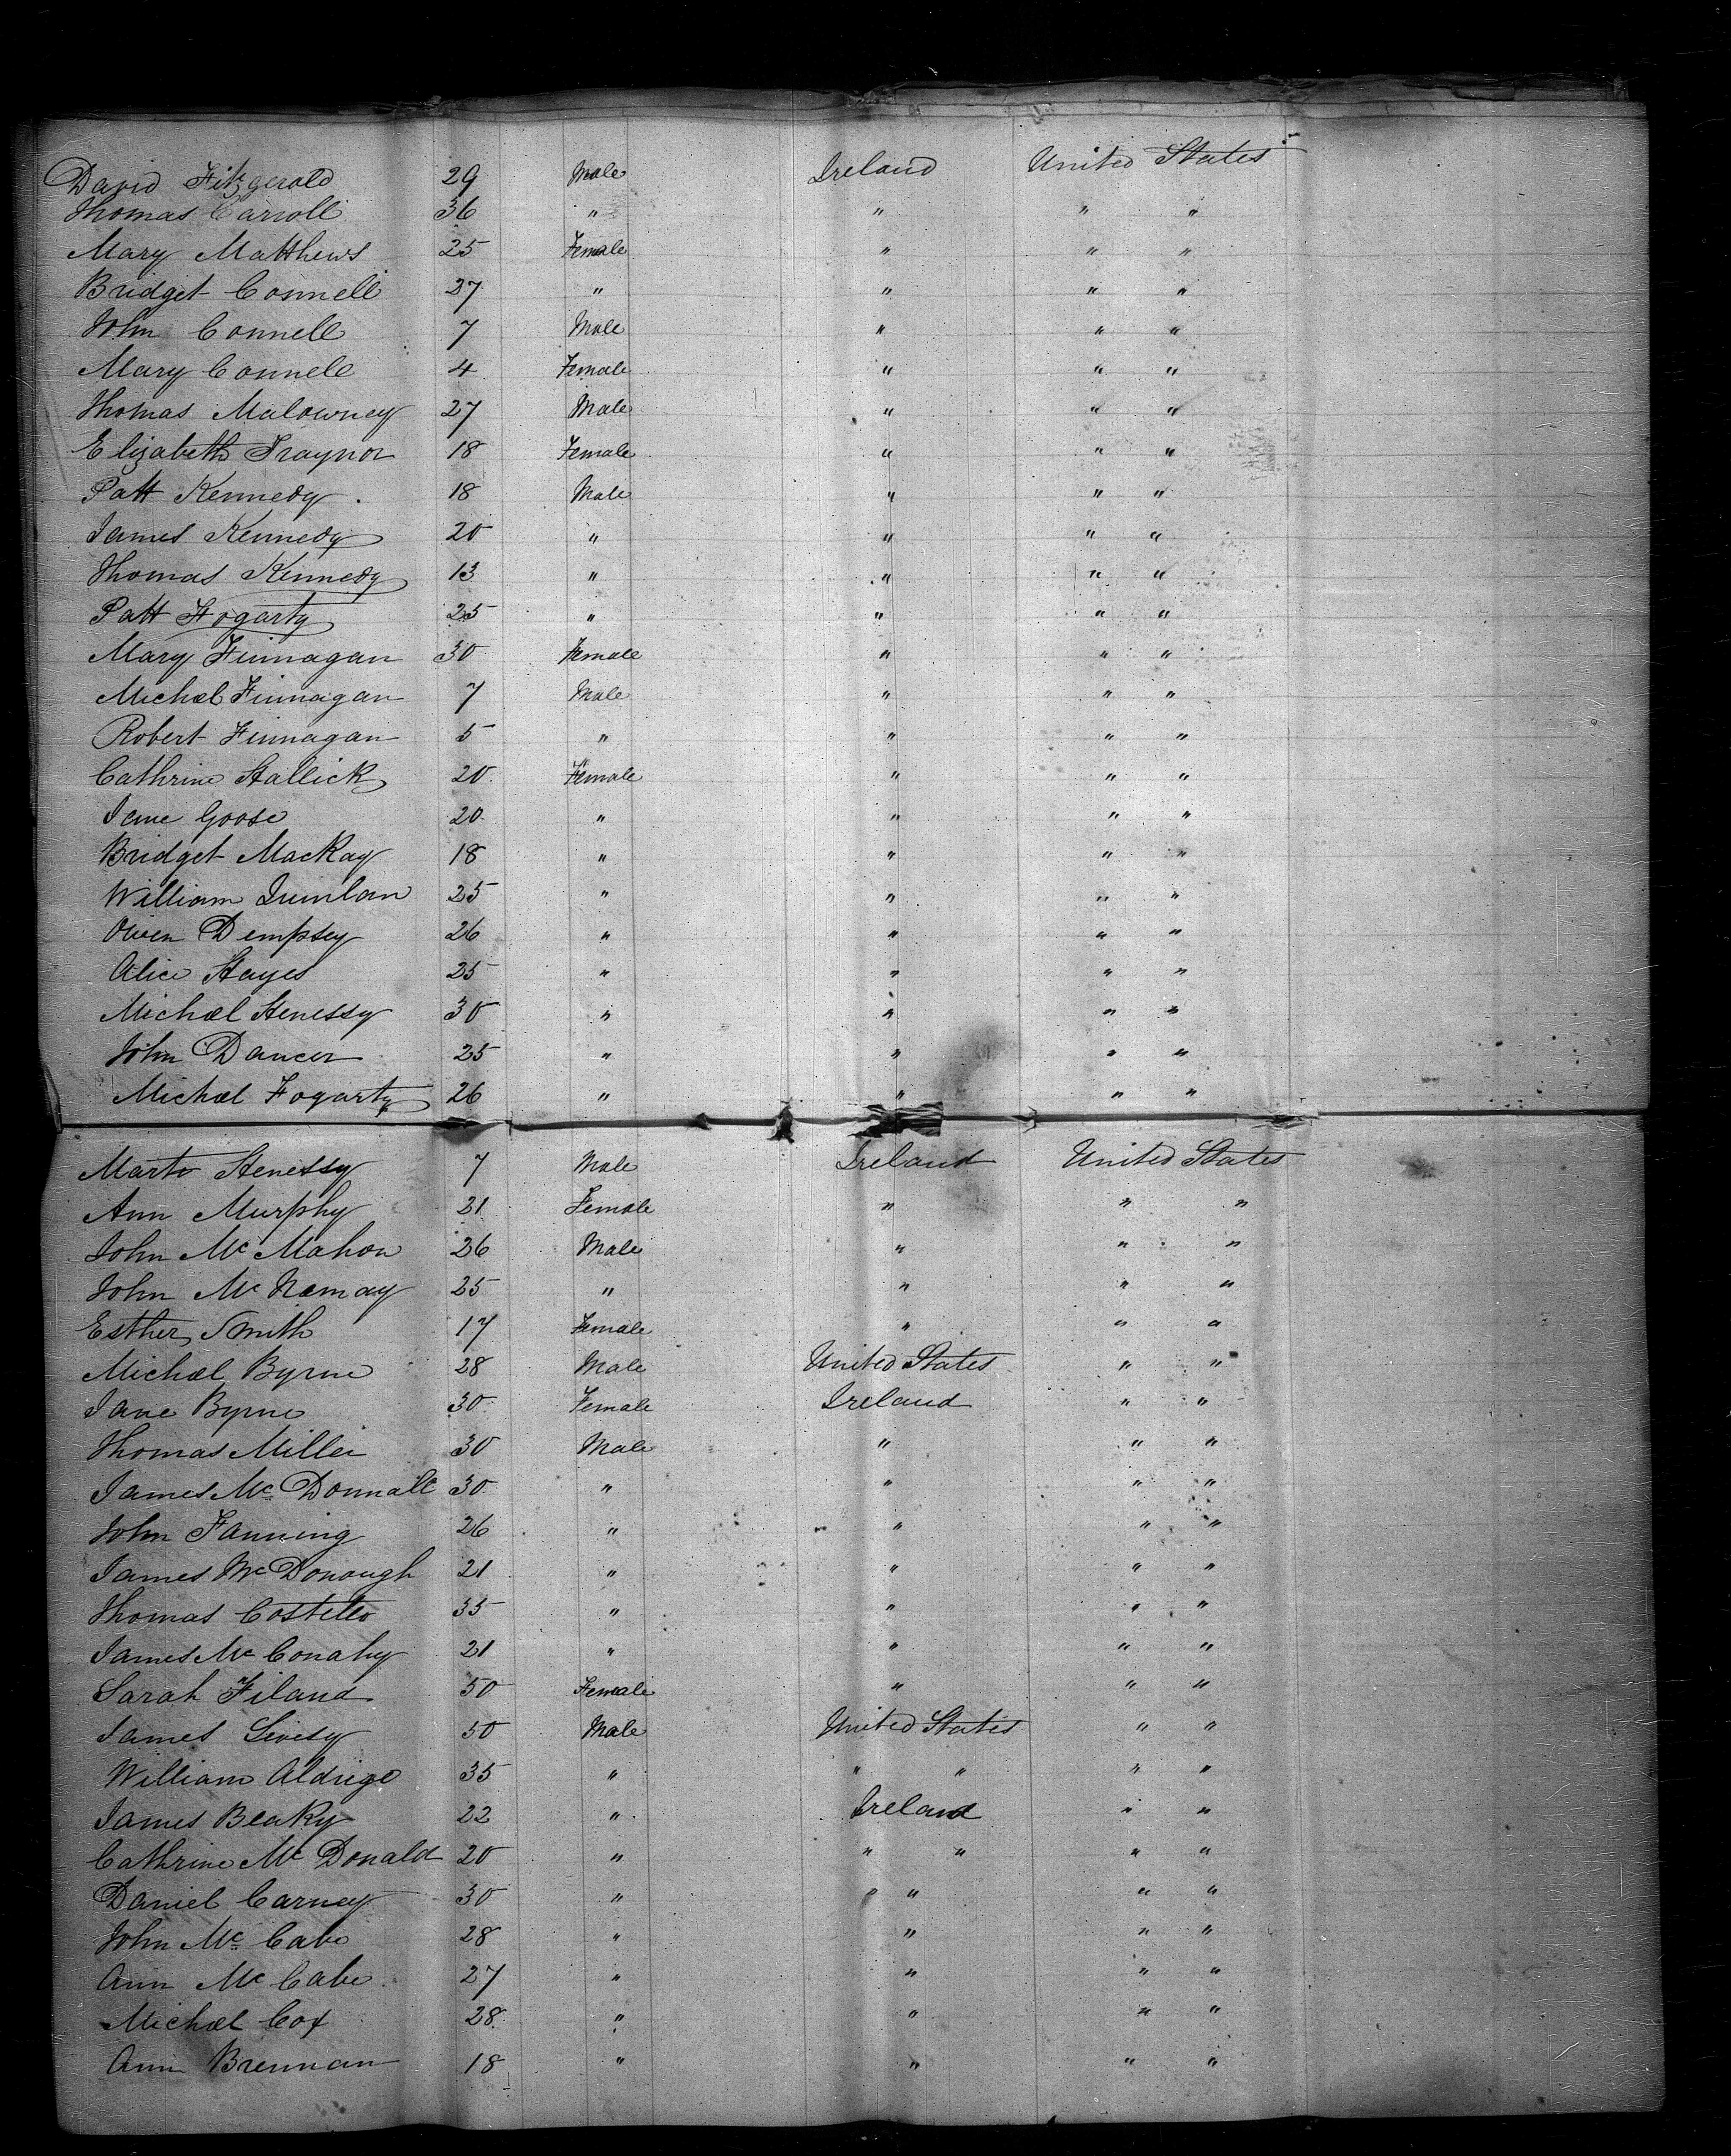 David Fitzgerald 29 Male Ireland United States
Thomas Carroll 36 " " " "
Mary Matthews 25 Female " " "
Bridget Connell 27 " " " "
John Connell 7 Male " " "
Mary Connell 4 Female " " "
Thomas Malowney 27 Male " " "
Elizabeth Traynor 18 Female " " "
Patt Kennedy 18 Male " " "
James Kennedy 20 " " " "
Thomas Kennedy 13 " " " "
Patt Fogarty 25 " " " "
Mary Finnagan 30 Female " " "
Michael Finnagan 7 Male " " "
Robert Finnagan 5 " " " "
Cathrine Hallick 20 Female " " "
Jane Goose 20 " " " "
Bridget MacKay 18 " " " "
William Quinlan 25 " " " "
Owen Dempsey 26 " " " "
Alice Hayes 25 " " " "
Michael Henessy 30 " " " "
John Dancer 25 " " " "
Michael Fogarty 26 " " " "
Henessy 7 Male Ireland United States
Ann Murphy 21 Female " " "
John McMahon 26 Male " " "
John McNamay 25 " " " "
Esther Smith 17 Female " " "
Michael Byrne 28 Male United States " "
Jane Byrne 30 Female Ireland " "
Thomas Miller 30 Male " " "
James McDonnall 30 " " " "
John Fanning 26 " " " "
James McDonough 21 " " " "
Thomas Costello 35 " " " "
James McConahy 21 " " " "
Sarah Filand 50 Female " " "
James Livesy 50 Male United States " "
William Aldrige 35 " " " " "
James Beaky 22 " Ireland " "
Cathrine McDonald 20 " " " " "
Daniel Carney 30 " " " "
John McCabe 28 " " " "
Ann McCabe 27 " " " "
Michael Cox 28 " " " "
Ann Brennan 18 " " " "